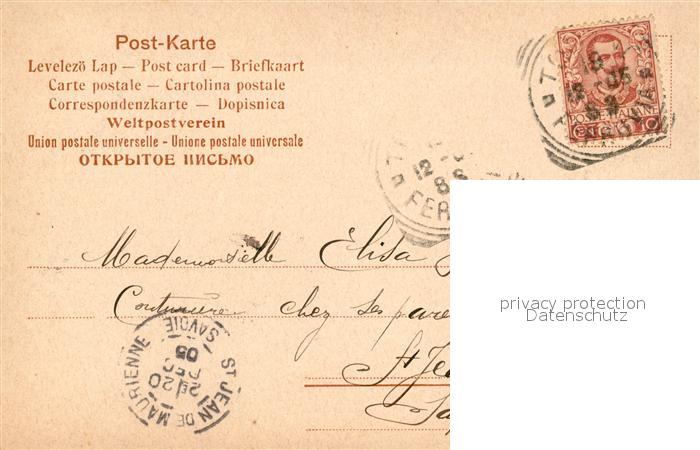 Post-Karte
Levelező Lap — Post card — Briefkaart
Carte postale — Cartolina postale
Correspondenzkarte — Dopisnica
Weltpostverein
Union postale universelle - Unione postale universale
ОТКРЫТОЕ ПИСЬМО
POSTE ITALIANE
FERROVIA
12
FER
Mademoiselle Élisa
Couturière chez ses
St
ST JEAN DE MAURIENNE
SAVOIE
20
DEC
05
privacy protection
Datenschutz